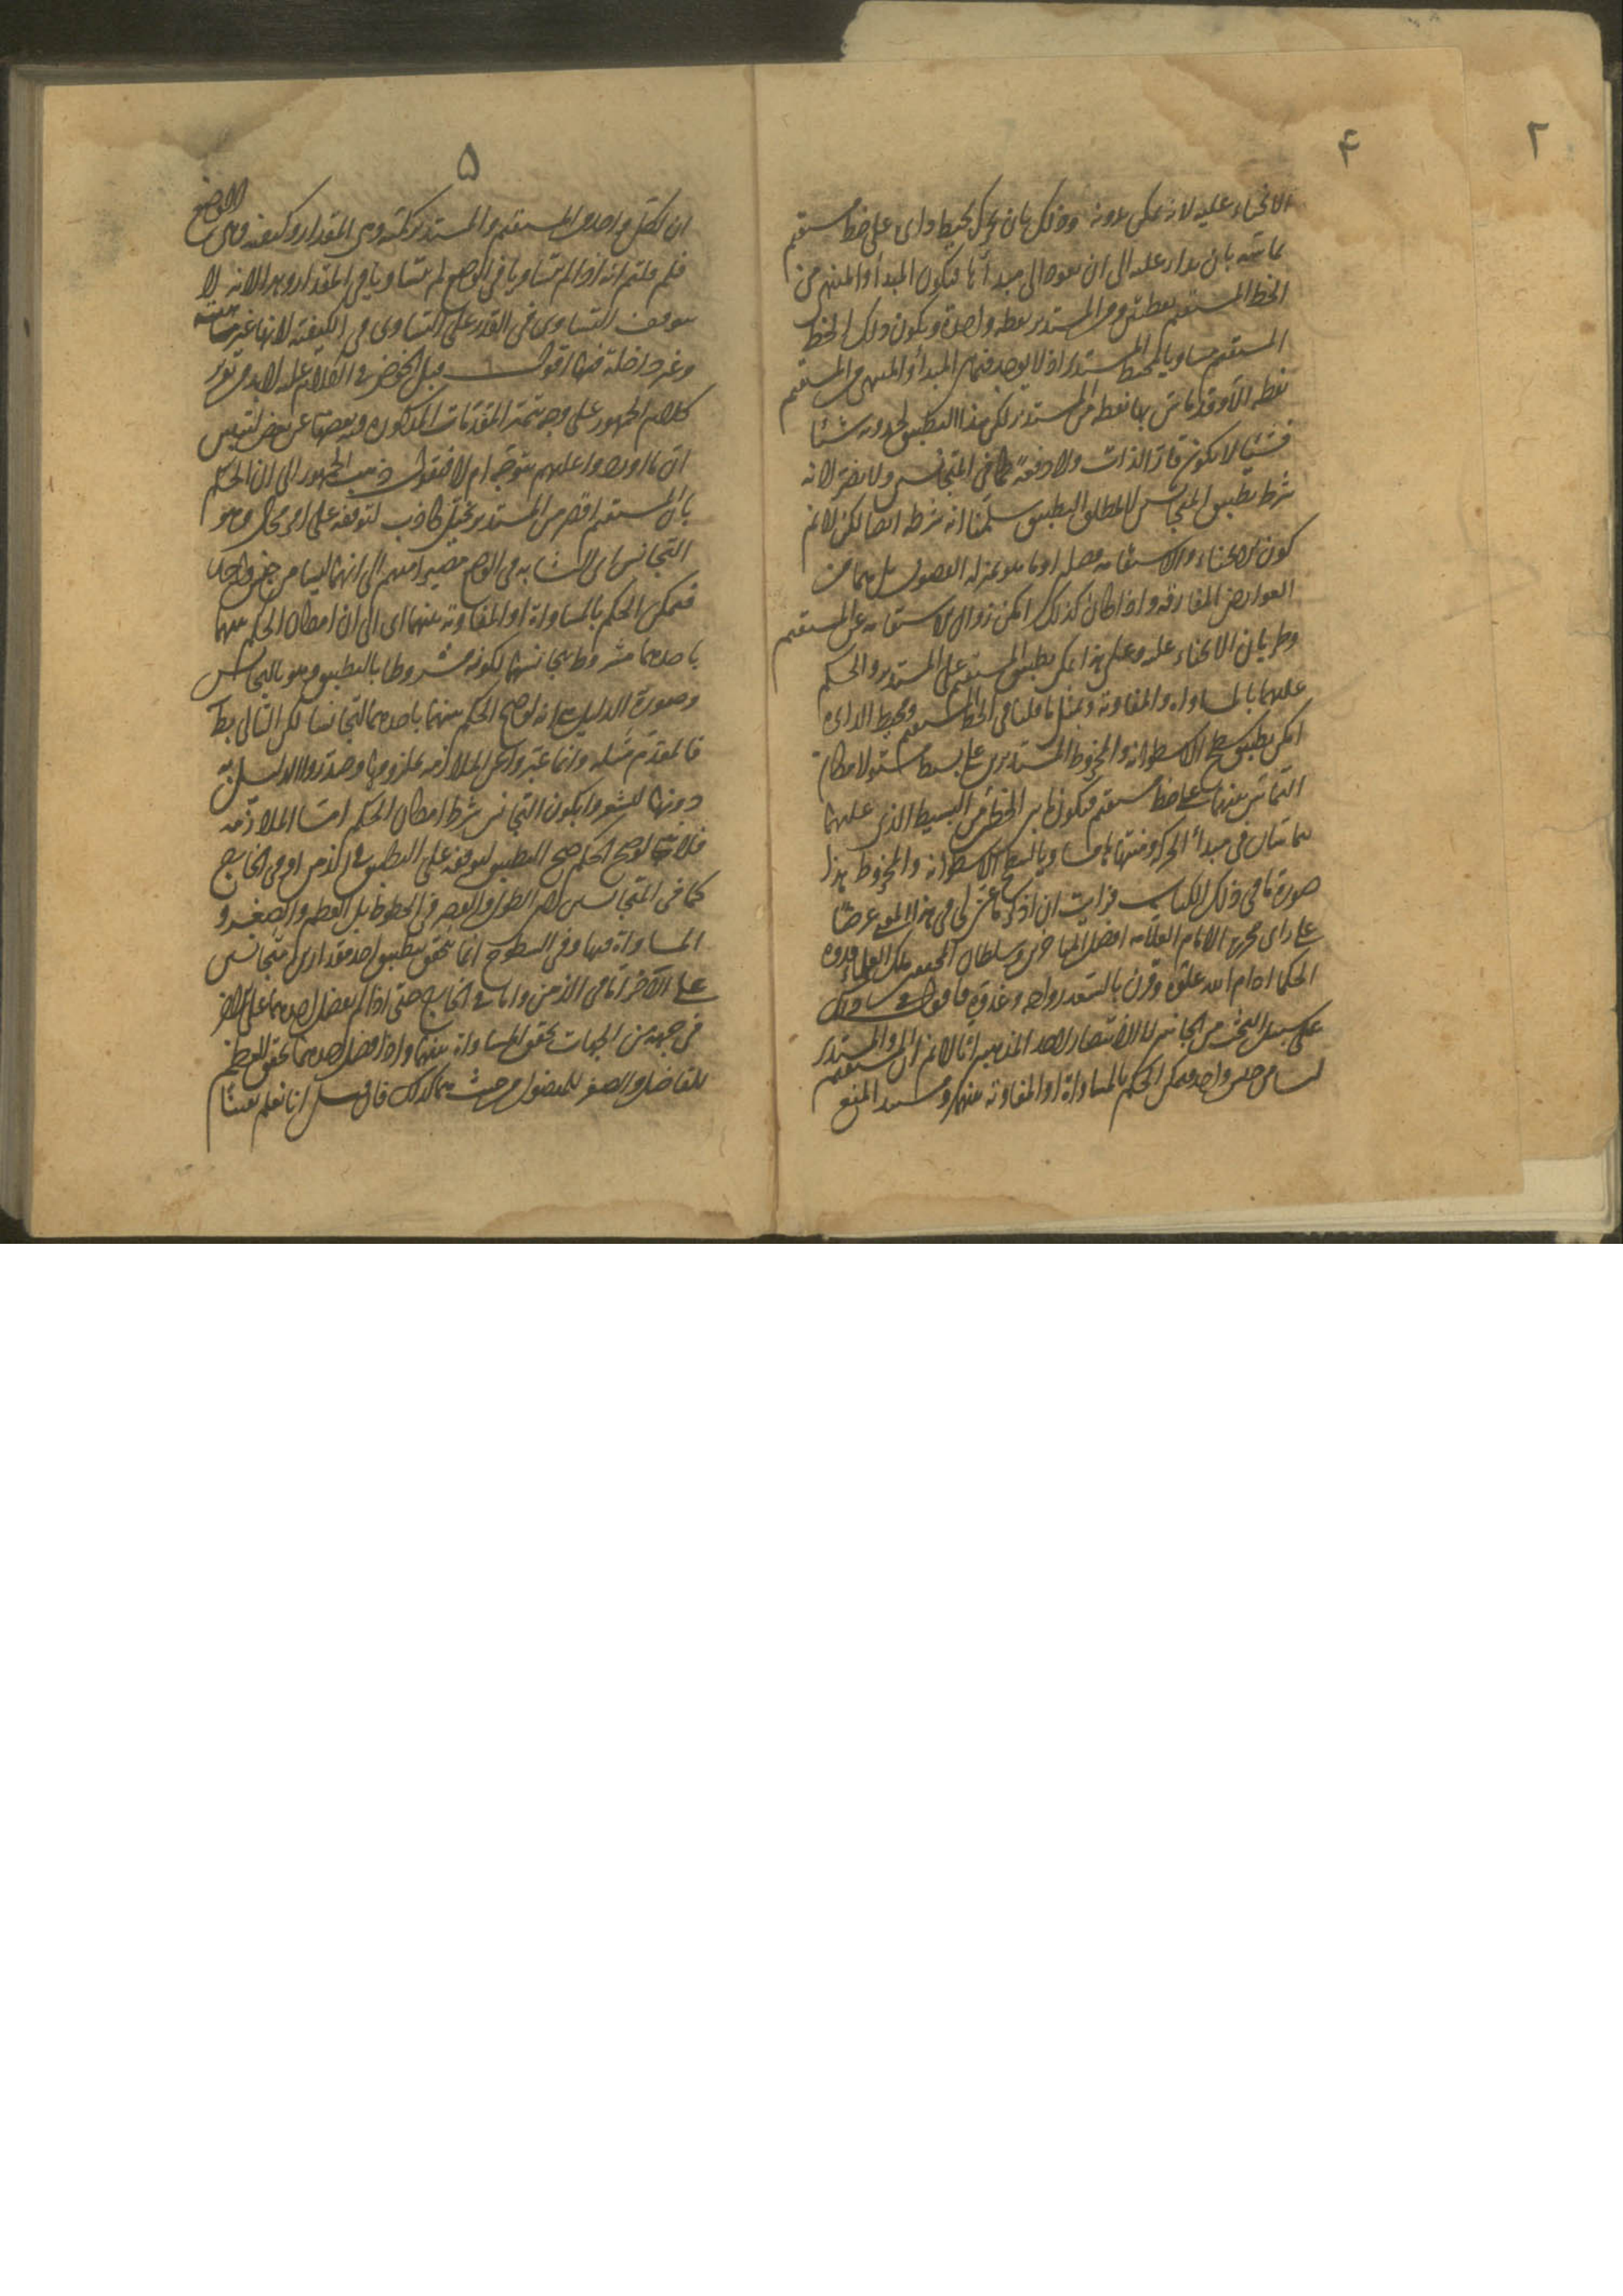 ٢
۴
الانحناء عليه لانه يمكن بدونه وذلك بان يحرك محيط دائرة على خط مستقيم
تماسه بان يدار عليه الى ان يعود الى مبدأها فيكون المبدأ والمنتهى من
الخط المستقيم نقطتين ومن المستدير نقطة واحدة ويكون ذلك الخط
المستقيم مساويا لمحيط المستدير اذ لا يوجد فيما بين المبدأ والمنتهى من المستقيم
نقطة الا وقد ماس بها نقطة من المستدير لكن هذا التطبيق لحدوثه شيئا
فشيئا لا يكون قار الذات ولا دفعة كما في المتجانسين ولا يضر لانه
شرط تطبيق المتجانسين لا مطلق التطبيق سلمنا انه شرط ايضا لكن لا نم
كون الانحناء والاستقامة فصلا او ما هو بمنزلة الفصول بل هما من
العوارض المفارقة واذا كان كذلك امكن زوال الاستقامة عن المستقيم
وطريان الانحناء عليه وعلى هذا يمكن تطبيق المستقيم على المستدير والحكم
عليهما بالمساواة والمفاوتة وبمثل ما قلنا في الخط المستقيم ومحيط الدائرة
امكن تطبيق سطح الاسطوانة والمخروط المستديرين على بسيط مستو لامكان
التماس بينهما على خط مستقيم فيكون ما بين الخطين من البسيط الذي عليهما
يتماسان في مبدأ الحركة ومنتهاها مساويا لسطح الاسطوانة والمخروط هذا
صورة ما في ذلك الكتاب فرأيت ان اذكر ما عن لي في هذا المعنى عرضا
على راى محررها الامام العلامة افضل المتأخرين وسلطان المحققين ملك العلماء قدوة
الحكما ادام الله علوه وقرن بالسعد رواحه وغدوه فاقول في
على سبيل البحث من الجانبين لا الانتصار لاحد المذهبين انا لا نم ان المستقيم والمستدير
ليسا من جنس واحد فيمكن الحكم بالمساواة او المفاوتة بينهما وسند المنع
۵
ان لكل واحد من المستقيم والمستدير كمية وهى المقدار وكيفية وهى
الوضع
فلم قلتم انه اذا لم يتساويا في الوضع لم يتساويا في المقدار وهذا لانه لا
يتوقف التساوى في القدر على التساوى في الكيفية لانها غير
وغير داخلة فيها اقول قبل الخوض في الكلام عليه لابد من تقرير
كلام الجمهور على وجه يتميز المقدمات المذكورة فيه بعضها عن بعض ليتبين
ان ما اورده عليهم متوجه ام لا فنقول ذهب الجمهور الى ان الحكم
بان المستقيم اقصر من المستدير تخيل كاذب لتوقفه على امر محال وهو
التجانس اى التشابه في الوضع مصيرا منهم الى انهما ليسا من جنس واحد
فيمكن الحكم بالمساواة او المفاوتة بينهما اى الى ان امكان الحكم بينهما
باحدهما مشروط بتجانسهما لكونه مشروطا بالتطبيق وهو بالتجانس
وصورة الدليل انه لو صح الحكم بينهما باحدهما لتجانسا لكن التالى بط
فالمقدم مثله وانما عبروا عن الملازمة بملزومها وصدروا الدليل به
دونها ليشعروا بكون التجانس شرط امكان الحكم اما الملازمة
فلانه لو صح الحكم صح التطبيق لتوقفه على التطبيق في الذهن او في الخارج
كما في المتجانسين لان الطول والقصر في الخطوط بل العظم والصغر و
المساواة فيها وفى السطوح انما تحقق بتطبيق احد مقدارين متجانسين
على الآخر اما في الذهن واما في الخارج حتى اذا لم يفضل احدهما على الآخر
في جهة من الجهات تحقق المساواة بينهما واذا فضل احدهما تحقق العظم
للفاضل والصغر للمفضول من حيث هما كذلك فان قيل انا نعلم يقينا